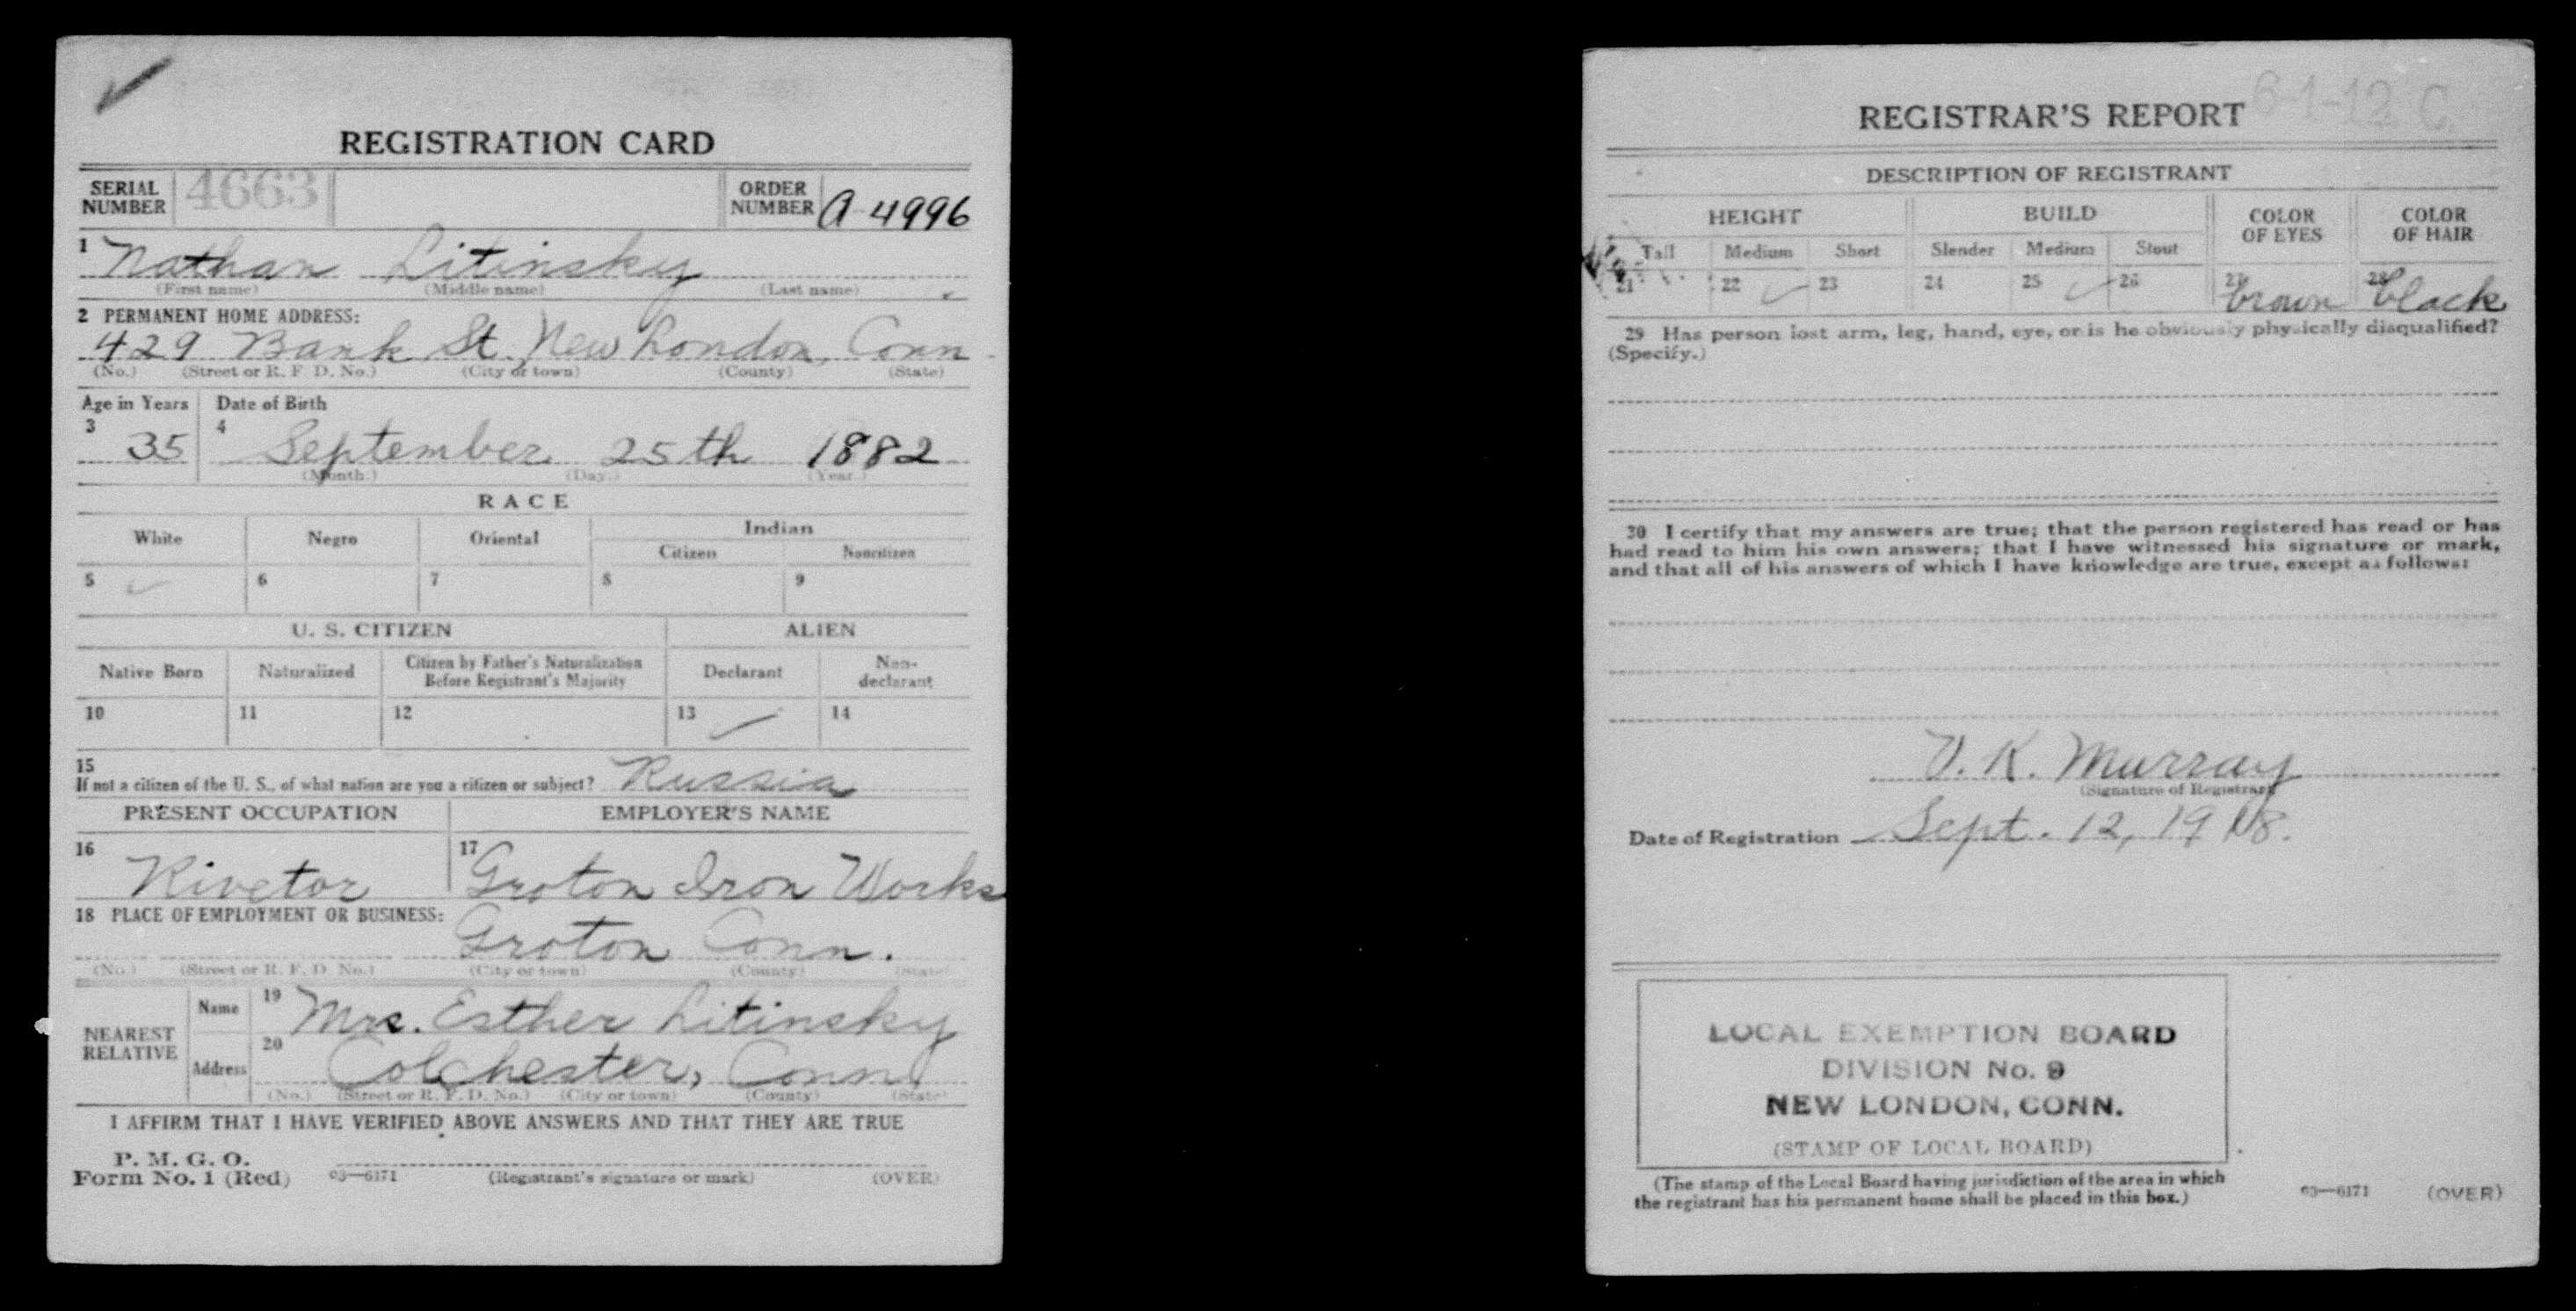 REGISTRATION CARD
SERIAL NUMBER 4663 ORDER NUMBER A-4996
1 Nathan Litinsky
(First name) (Middle name) (Last name)
2 PERMANENT HOME ADDRESS:
429 Bank St. New London, Conn
(No.) (Street or R. F. D. No.) (City or town) (County) (State)
Age in Years Date of Birth
3 35 4 September 25th 1882
(Month.) (Day.) (Year.)
RACE
White Negro Oriental Indian
Citizen Noncitizen
5 ✓ 6 7 8 9
U. S. CITIZEN ALIEN
Native Born Naturalized Citizen by Father's Naturalization Before Registrant's Majority Declarant Non-declarant
10 11 12 13 ✓ 14
15
If not a citizen of the U. S., of what nation are you a citizen or subject? Russia
PRESENT OCCUPATION EMPLOYER'S NAME
16 Rivetor 17 Groton Iron Works
18 PLACE OF EMPLOYMENT OR BUSINESS:
Groton Conn.
(No.) (Street or R. F. D. No.) (City or town) (County) (State)
NEAREST RELATIVE
Name 19 Mrs. Esther Litinsky
Address 20 Colchester, Conn.
(No.) (Street or R. F. D. No.) (City or town) (County) (State)
I AFFIRM THAT I HAVE VERIFIED ABOVE ANSWERS AND THAT THEY ARE TRUE
P. M. G. O.
Form No. 1 (Red) 03—6171 (Registrant's signature or mark) (OVER)
6-1-12 C.
REGISTRAR'S REPORT
DESCRIPTION OF REGISTRANT
HEIGHT BUILD COLOR OF EYES COLOR OF HAIR
Tall Medium Short Slender Medium Stout
21 22 ✓ 23 24 25 ✓ 26 27 brown 28 black
29 Has person lost arm, leg, hand, eye, or is he obviously physically disqualified?
(Specify.)
30 I certify that my answers are true; that the person registered has read or has
had read to him his own answers; that I have witnessed his signature or mark,
and that all of his answers of which I have knowledge are true, except as follows:
V. K. Murray
(Signature of Registrar)
Date of Registration Sept. 12, 1918.
LOCAL EXEMPTION BOARD
DIVISION No. 9
NEW LONDON, CONN.
(STAMP OF LOCAL BOARD)
(The stamp of the Local Board having jurisdiction of the area in which
the registrant has his permanent home shall be placed in this box.)
03—6171 (OVER)